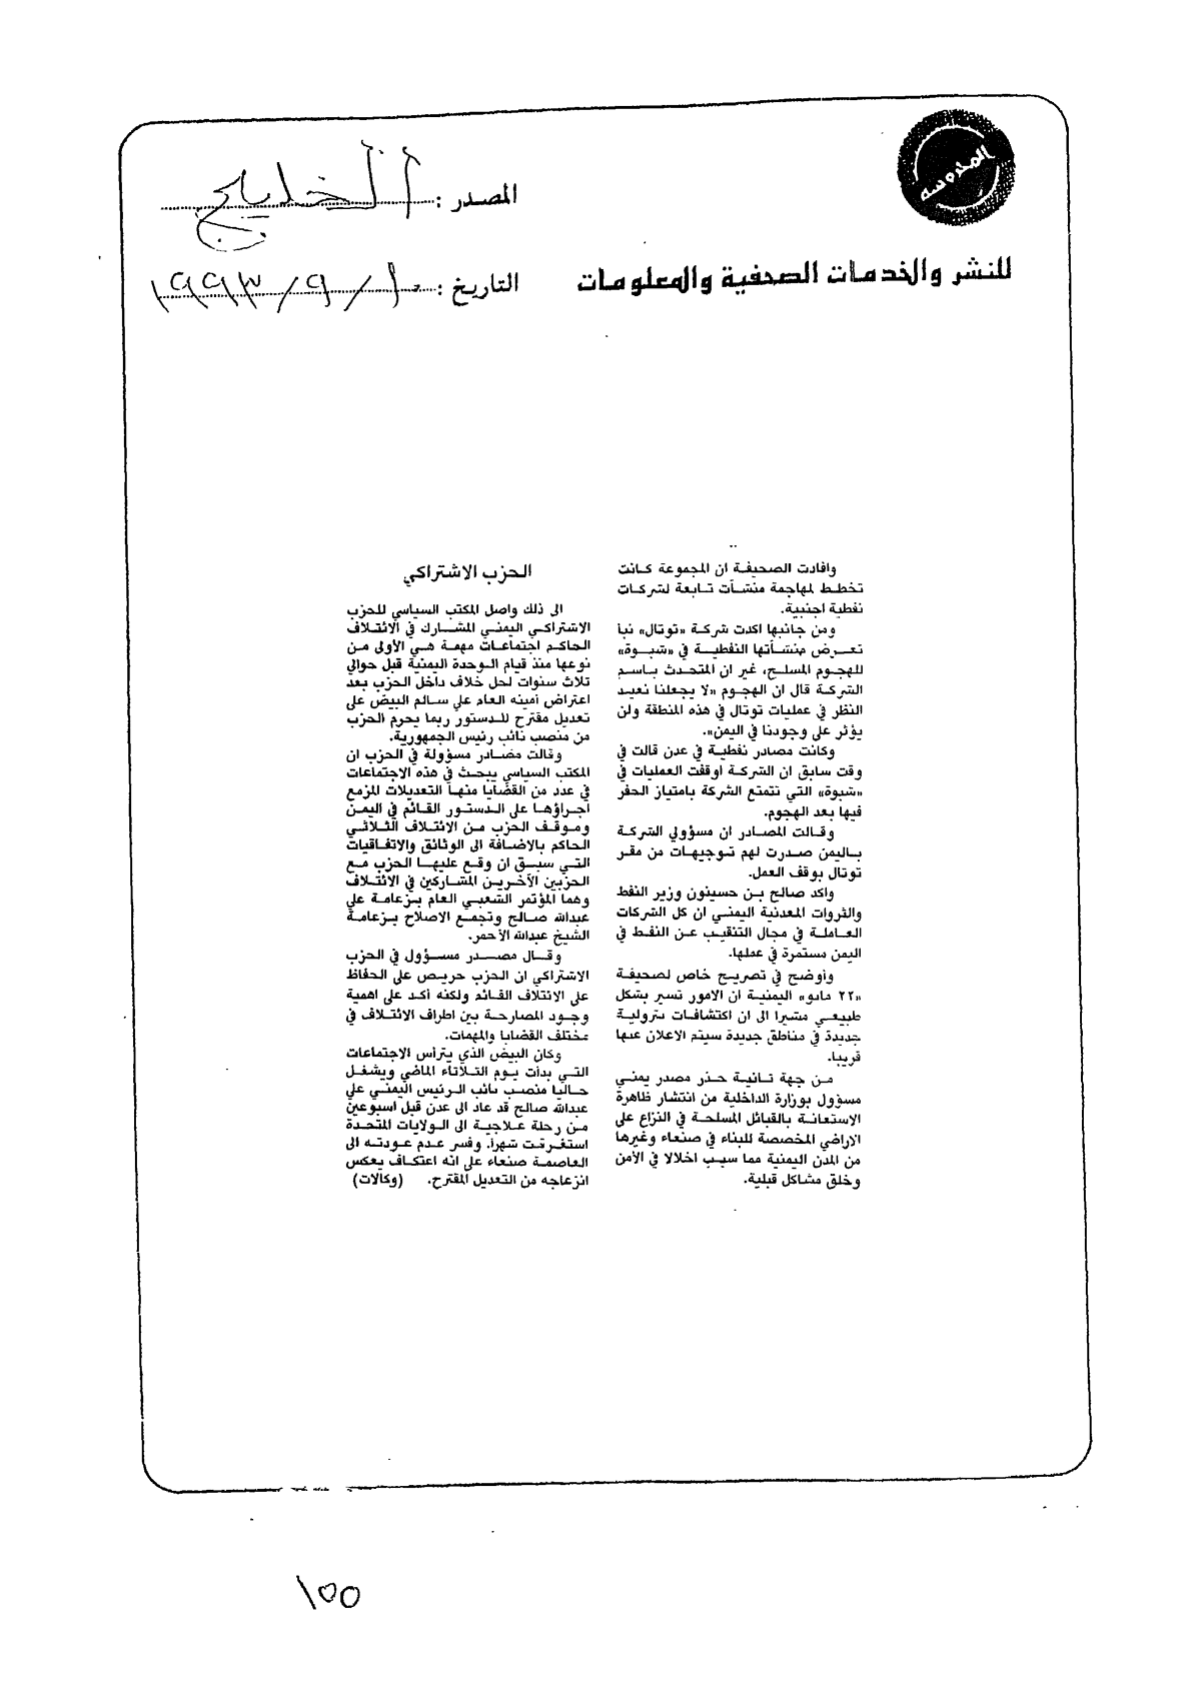 المحروسه
المصدر : الخليج
للنشر والخدمات الصحفية والمعلومات
التاريخ : ١٠ / ٩ / ١٩٩٣
وافادت الصحيفة ان المجموعة كانت
تخطط لمهاجمة منشآت تابعة لشركات
نفطية اجنبية.
ومن جانبها اكدت شركة «توتال» نبأ
تعرض منشآتها النفطية في «شبوة»
للهجوم المسلح، غير ان المتحدث باسم
الشركة قال ان الهجوم «لا يجعلنا نعيد
النظر في عمليات توتال في هذه المنطقة ولن
يؤثر على وجودنا في اليمن».
وكانت مصادر نفطية في عدن قالت في
وقت سابق ان الشركة اوقفت العمليات في
«شبوة» التي تتمتع الشركة بامتياز الحفر
فيها بعد الهجوم.
وقالت المصادر ان مسؤولي الشركة
باليمن صدرت لهم توجيهات من مقر
توتال بوقف العمل.
واكد صالح بن حسينون وزير النفط
والثروات المعدنية اليمني ان كل الشركات
العاملة في مجال التنقيب عن النفط في
اليمن مستمرة في عملها.
وأوضح في تصريح خاص لصحيفة
«٢٢ مايو» اليمنية ان الامور تسير بشكل
طبيعي مشيرا الى ان اكتشافات بترولية
جديدة في مناطق جديدة سيتم الاعلان عنها
قريبا.
من جهة ثانية حذر مصدر يمني
مسؤول بوزارة الداخلية من انتشار ظاهرة
الاستعانة بالقبائل المسلحة في النزاع على
الاراضي المخصصة للبناء في صنعاء وغيرها
من المدن اليمنية مما سبب اخلالا في الأمن
وخلق مشاكل قبلية.
الحزب الاشتراكي
الى ذلك واصل المكتب السياسي للحزب
الاشتراكي اليمني المشارك في الائتلاف
الحاكم اجتماعات مهمة هي الأولى من
نوعها منذ قيام الوحدة اليمنية قبل حوالي
ثلاث سنوات لحل خلاف داخل الحزب بعد
اعتراض أمينه العام علي سالم البيض على
تعديل مقترح للدستور ربما يحرم الحزب
من منصب نائب رئيس الجمهورية.
وقالت مصادر مسؤولة في الحزب ان
المكتب السياسي يبحث في هذه الاجتماعات
في عدد من القضايا منها التعديلات المزمع
اجراؤها على الدستور القائم في اليمن
وموقف الحزب من الائتلاف الثلاثي
الحاكم بالاضافة الى الوثائق والاتفاقيات
التي سبق ان وقع عليها الحزب مع
الحزبين الآخرين المشاركين في الائتلاف
وهما المؤتمر الشعبي العام بزعامة علي
عبدالله صالح وتجمع الاصلاح بزعامة
الشيخ عبدالله الأحمر.
وقال مصدر مسؤول في الحزب
الاشتراكي ان الحزب حريص على الحفاظ
على الائتلاف القائم ولكنه أكد على اهمية
وجود المصارحة بين اطراف الائتلاف في
مختلف القضايا والمهمات.
وكان البيض الذي يترأس الاجتماعات
التي بدأت يوم الثلاثاء الماضي ويشغل
حاليا منصب نائب الرئيس اليمني علي
عبدالله صالح قد عاد الى عدن قبل اسبوعين
من رحلة علاجية الى الولايات المتحدة
استغرقت شهرا. وفسر عدم عودته الى
العاصمة صنعاء على انه اعتكاف يعكس
انزعاجه من التعديل المقترح. (وكالات)
١٥٥